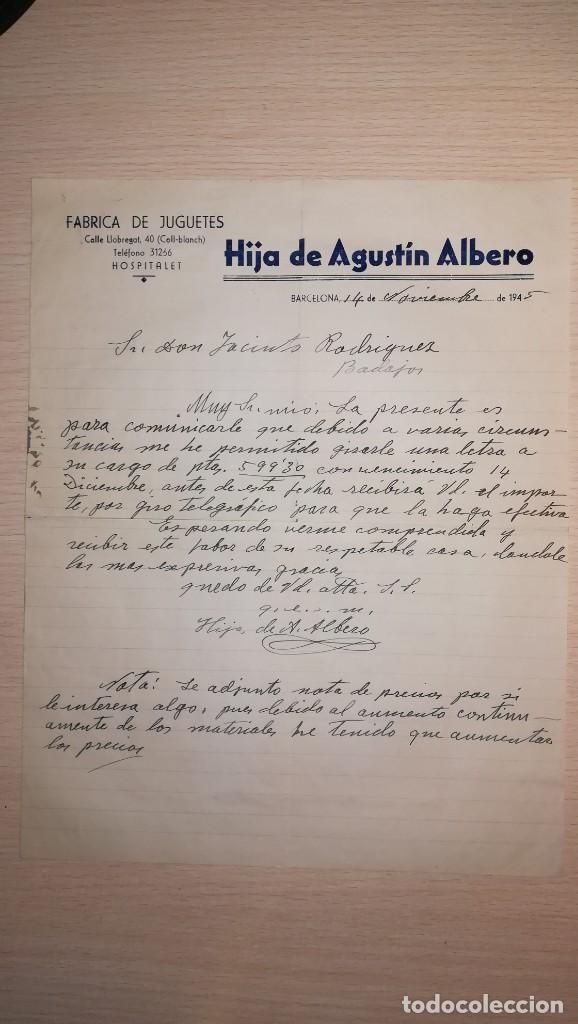 FABRICA DE JUGUETES
Calle Llobregat, 40 (Coll-blanch)
Teléfono 31266
HOSPITALET
Hija de Agustín Albero
BARCELONA, 14 de Noviembre de 1945
Sr. Don Jacinto Rodriguez
Badajos
Muy Sr. mio: La presente es
para comunicarle que debido a varias circuns-
tancias me he permitido girarle una letra a
su cargo de ptas. 599'30 con vencimiento 14
Diciembre, antes de esta fecha recibirá Vd. el impor-
te, por giro telegráfico para que la haga efectiva
Esperando verme comprendida y
recibir este fabor de su respetable casa, dandole
las mas expresivas gracias
quedo de Vd. atta. S. S.
q. e. s. m.
Hija de A. Albero
Nota: Le adjunto nota de precios por si
le interesa algo, pues debido al aumento continu-
amente de los materiales he tenido que aumentar
los precios
todocoleccion.net